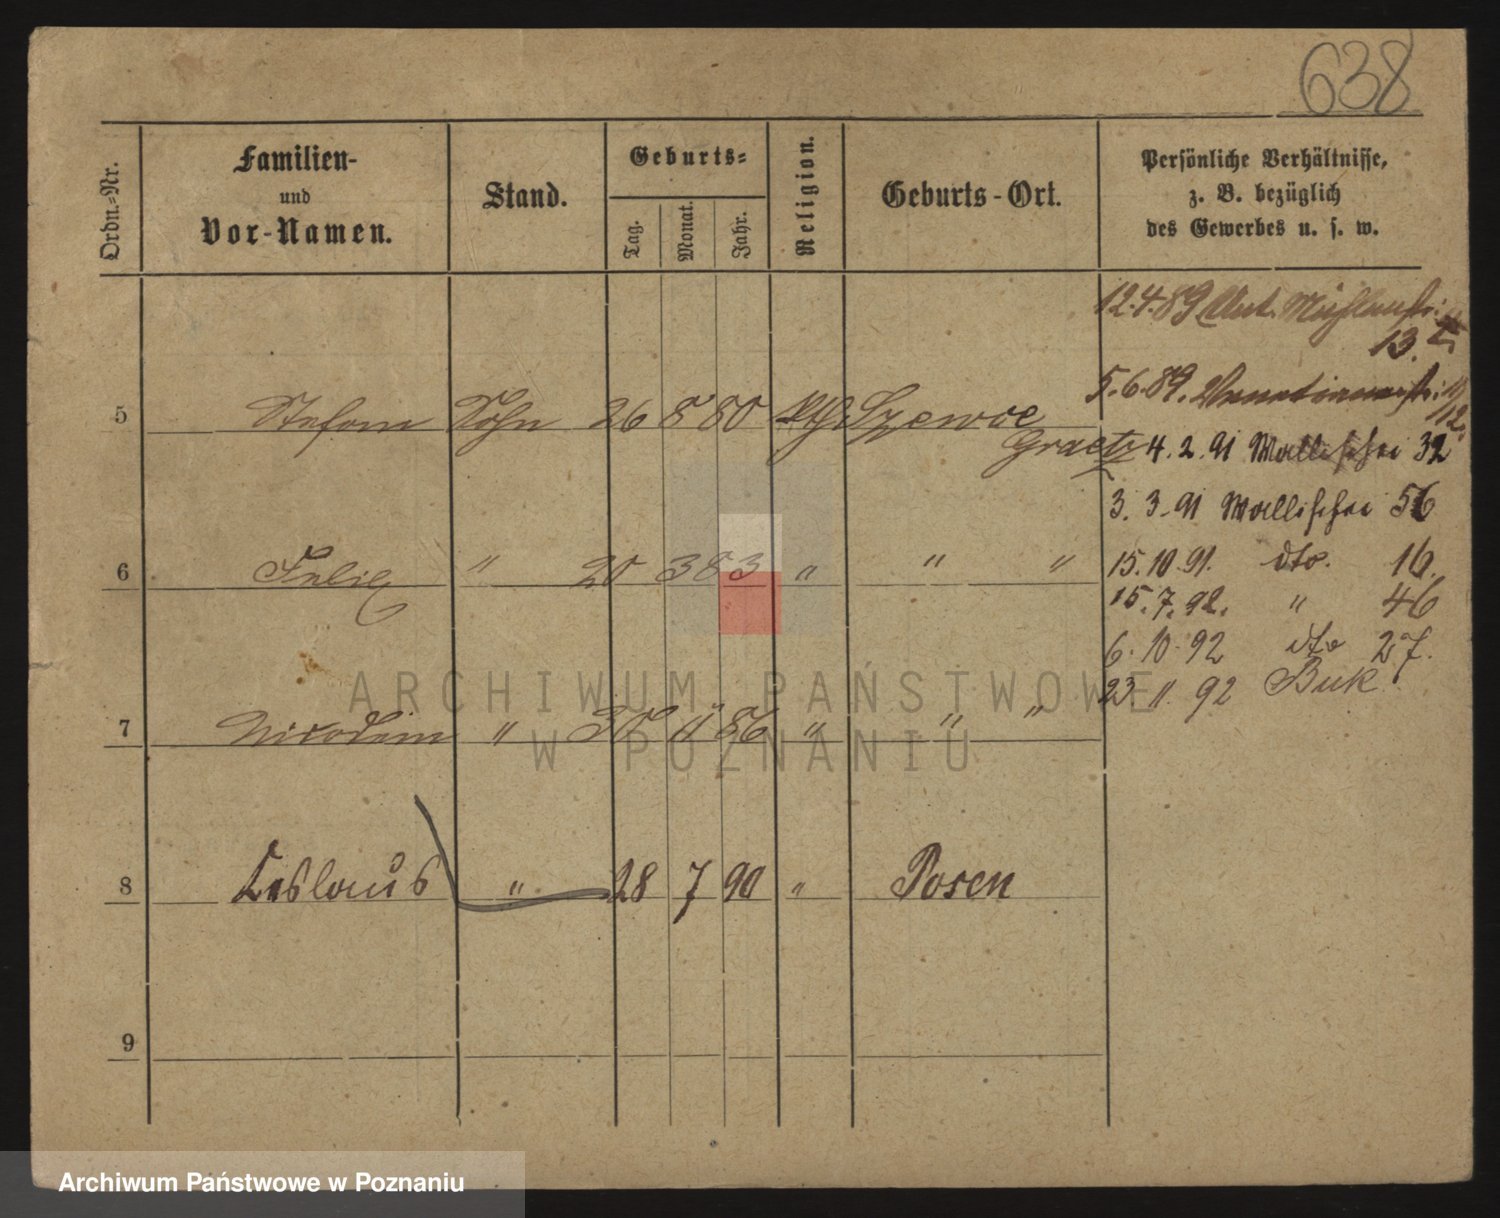 638
Ordn.-Nr.
Familien-
und
Vor-Namen.
Stand.
Geburts-
Tag.
Monat.
Jahr.
Religion.
Geburts-Ort.
Persönliche Verhältnisse,
z. B. bezüglich
des Gewerbes u. s. w.
12.4.89
13.
5.6.89.
5 Stefan Sohn 26 8 80 kth Szewce
Graetz
4.2.91 Wallischei 32
3.3.91 Wallischei 56
6 " 20 3 83 " " "
15.10.91. dto. 16.
15.7.92. " 46
6.10.92 dto 27.
23 11. 92 Buk
7 Nicodem " 30 11 86 " " "
8 Ceslaus " 28 7 90 " Posen
9
ARCHIWUM PAŃSTWOWE
W POZNANIU
Archiwum Państwowe w Poznaniu